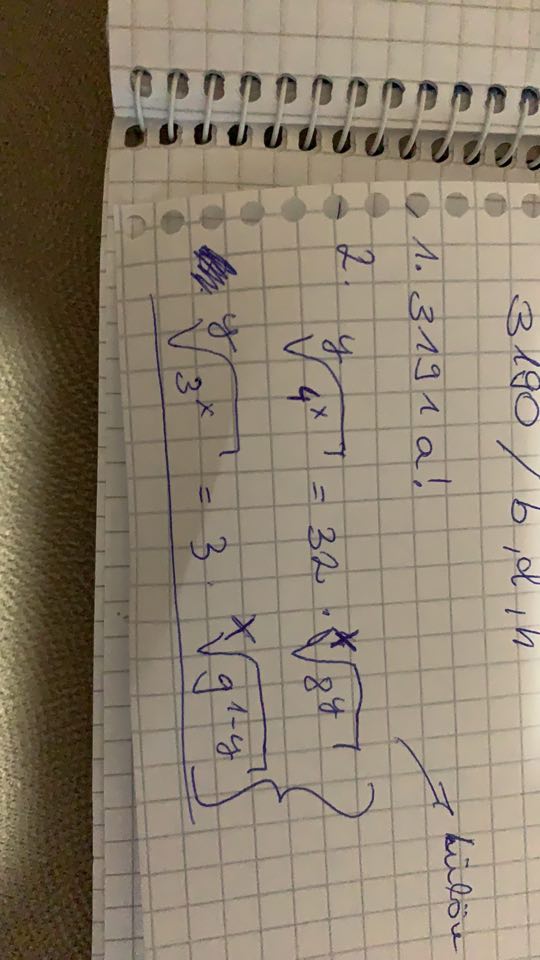 3190 / b, d, h
1. 3191 a!
2. ʸ√4ˣ = 32 · ˣ√8ʸ
ʸ√3ˣ = 3 · ˣ√9¹⁻ʸ
→ külön